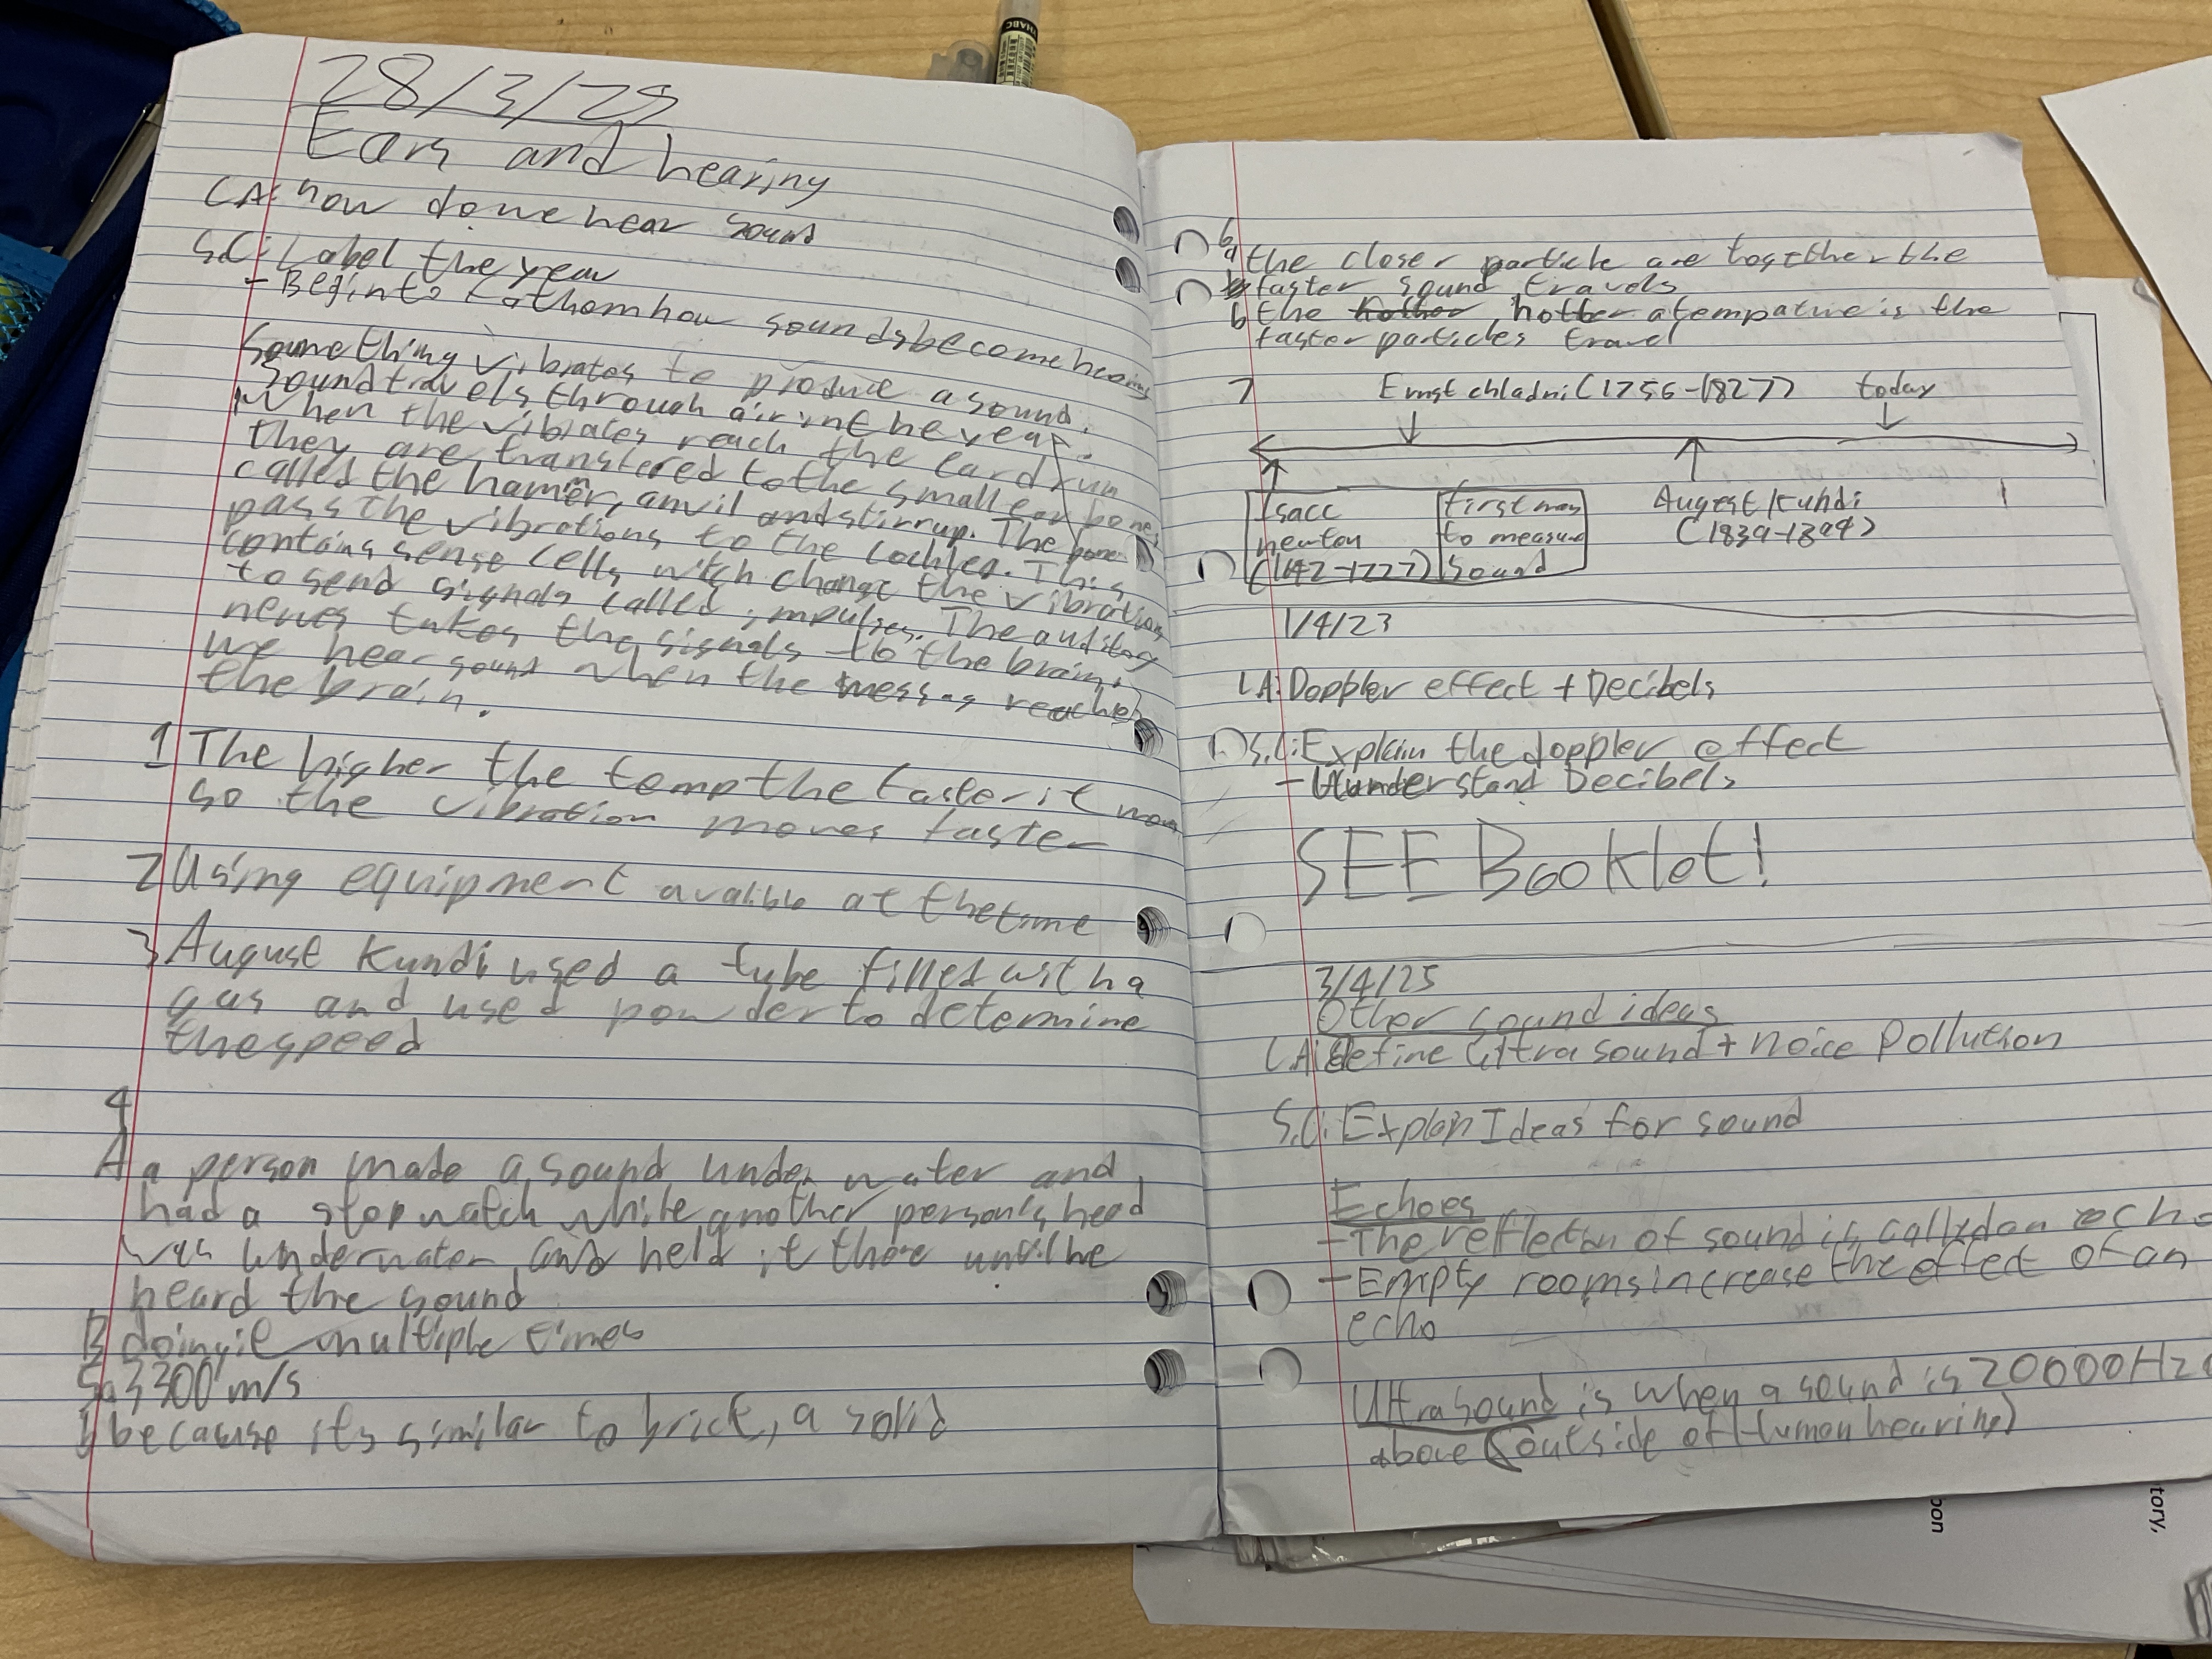 28/3/25
Ears and hearing
LA: How do we hear sound
S.C: Label the year
- Begin to fathom how sounds become hearing
Something vibrates to produce a sound.
Sound travels through air int he year.
When the vibrates reach the eardrum
they are transfered to the small ear bones
called the hammer, anvil and stirrup. The bones
pass the vibrations to the cochlea. This
contains sense cells witch change the vibrations
to send signals called impulses. The auditory
nerves takes the signals to the brain,
we hear sound when the messag reaches
the brain.
1 The higher the temp the faster it moves
so the vibration moves faster
2 Using equipment avalible at the time
3 August Kundi used a tube filled with a
gas and used powder to determine
the speed
4
A a person made a sound under water and
had a stopwatch while another person's head
was underwater and held it there until he
heard the sound
B doing it multiple times
5a 3300 m/s
b because its similar to brick, a solid
6
a the closer particle are together the
faster sound travels
b the hotter a tempature is the
faster particles travel
7 Ernst chladni (1756-1827) today
Isacc first man August Kundi
newton to measure (1839-1894)
(1642-1727) sound
1/4/23
LA: Doppler effect + Decibels
S.C: Explain the doppler effect
- Understand Decibels
SEE Booklet!
3/4/25
Other sound ideas
LA: define ultra sound + noice Pollution
S.C: Explan Ideas for sound
Echoes
- The reflection of sound is called an echo
- Empty rooms increase the effect of an
echo
Ultrasound is when a sound is 20000Hz
above (outside of Human hearing)
tory,
oon